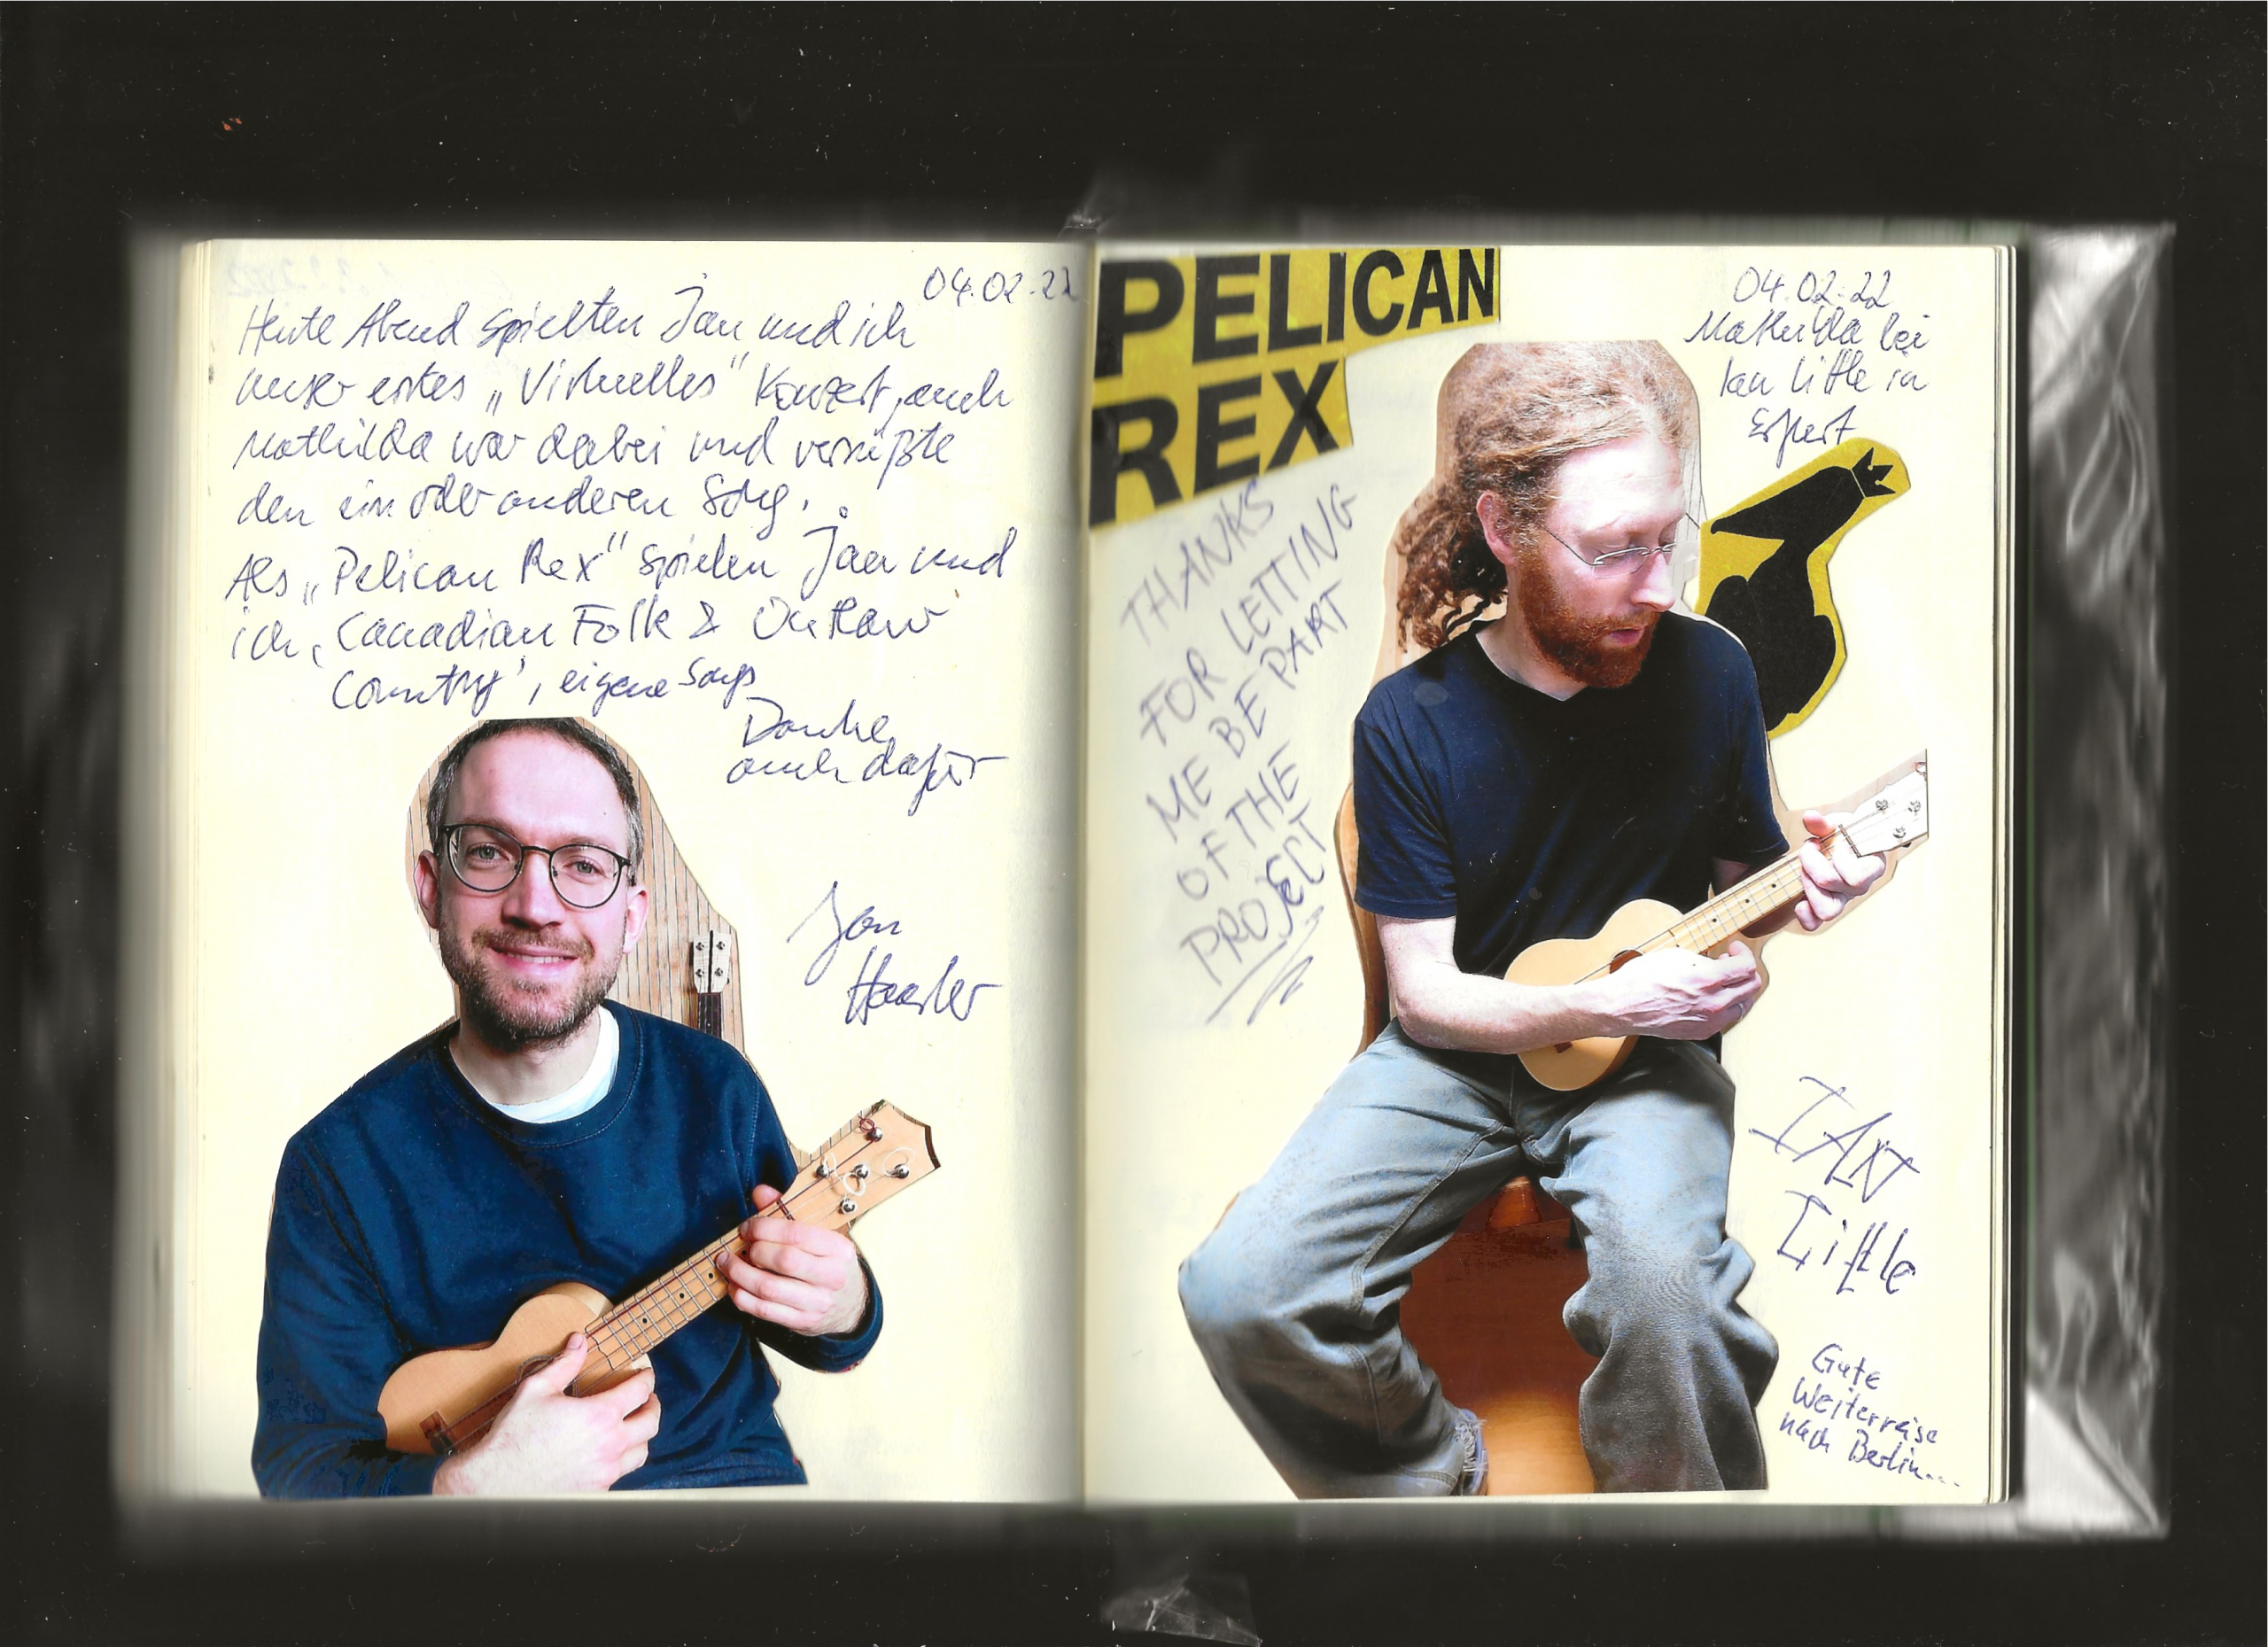 04.02.22
Heute Abend spielten Jan und ich
unser erstes „Virtuelles" Konzert, auch
Mathilda war dabei und versüßte
den ein oder anderen Song.
Als „Pelican Rex" spielen Jan und
ich ‚Canadian Folk & Outlaw
Country', eigene Songs
Danke
auch dafür
Jan
PELICAN
REX
THANKS
FOR LETTING
ME BE PART
OF THE
PROJECT
04.02.22
Mathilda bei
Ian Little in
Erfurt
IAN
Little
Gute
Weiterreise
nach Berlin...